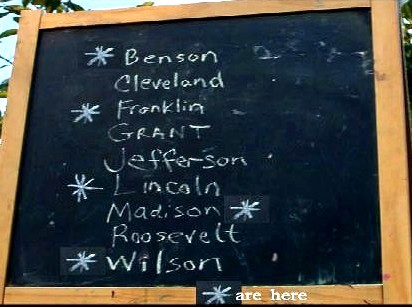 * Benson
Cleveland
* Franklin
GRANT
Jefferson
* Lincoln
Madison *
Roosevelt
* Wilson
* are here